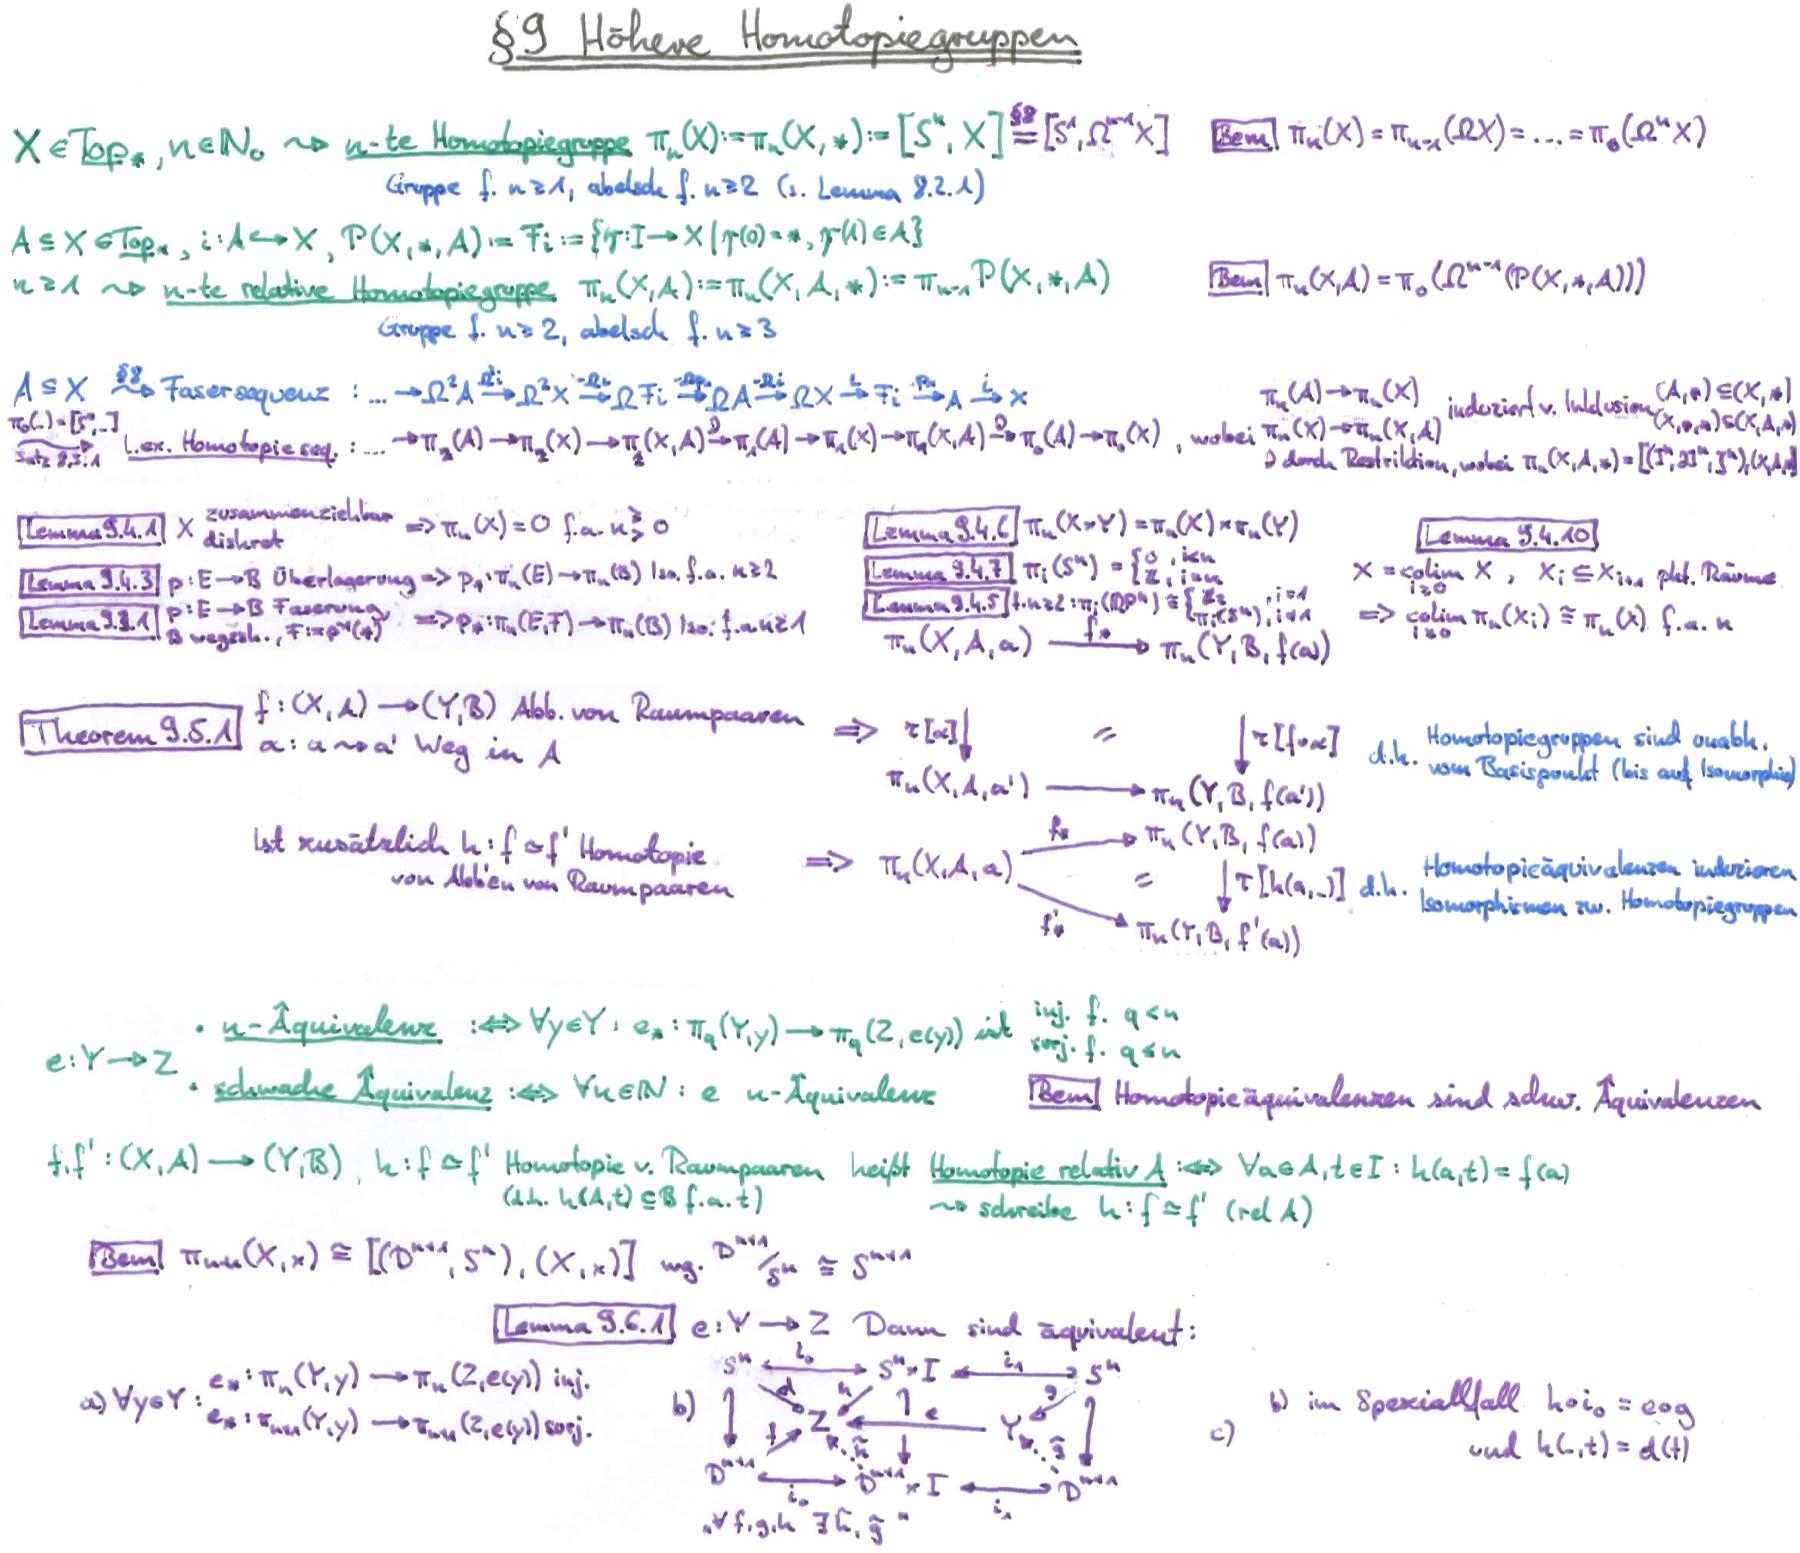 §9 Höhere Homotopiegruppen
X ∈ Top_*, n ∈ ℕ₀ ⇝ n-te Homotopiegruppe π_n(X) := π_n(X,*) := [Sⁿ, X] ≅ [S¹, Ω^{n-1}X] §8
Bem π_n(X) = π_{n-1}(ΩX) = ... = π_0(ΩⁿX)
Gruppe f. n≥1, abelsch f. n≥2 (s. Lemma 8.2.1)
A ⊆ X ∈ Top_*, i: A ↪ X, P(X,*,A) := F_i := {γ: I → X | γ(0) = *, γ(1) ∈ A}
n ≥ 1 ⇝ n-te relative Homotopiegruppe π_n(X,A) := π_n(X,A,*) := π_{n-1} P(X,*,A)
Bem π_n(X,A) = π_0(Ω^{n-1}(P(X,*,A)))
Gruppe f. n≥2, abelsch f. n≥3
A ⊆ X §8 ⇝ Fasersequenz: ... → Ω²A → Ω²X → ΩF_i → ΩA → ΩX → F_i → A → X
π_0(_) = [S⁰,_] Satz 8.5.1 l.ex. Homotopieseq.: ... → π_2(A) → π_2(X) → π_2(X,A) →∂ π_1(A) → π_1(X) → π_1(X,A) →∂ π_0(A) → π_0(X), wobei
π_n(A) → π_n(X)
π_n(X) → π_n(X,A)
induziert v. Inklusion (A,*) ⊆ (X,*)
(X,*,*) ⊆ (X,A,*)
∂ durch Restriktion, wobei π_n(X,A,*) = [(Iⁿ,∂Iⁿ,Jⁿ),(X,A,*)]
Lemma 9.4.1 X zusammenziehbar ⇒ π_n(X) = 0 f.a. n ≥ 0
diskret >
Lemma 9.4.3 p: E → B Überlagerung ⇒ p_*: π_n(E) → π_n(B) Iso. f.a. n≥2
Lemma 9.3.1 p: E → B Faserung, ⇒ p_*: π_n(E,F) → π_n(B) Iso. f.a. n≥1
B wegzsh., F := p⁻¹(*)
Lemma 9.4.6 π_n(X×Y) = π_n(X) × π_n(Y)
Lemma 9.4.7 π_i(Sⁿ) = {0, i<n
ℤ, i=n
Lemma 9.4.5 f. n≥2: π_i(ℝPⁿ) ≅ {ℤ₂, i=1
π_i(Sⁿ), i≠1
Lemma 9.4.10
X = colim_{i≥0} X, X_i ⊆ X_{i+1} pkt. Räume
⇒ colim_{i≥0} π_n(X_i) ≅ π_n(X) f.a. n
Theorem 9.5.1 f: (X,A) → (Y,B) Abb. von Raumpaaren ⇒
α: a ⇝ a' Weg in A
π_n(X,A,a) f_* → π_n(Y,B,f(a))
τ[α] ↓ = ↓ τ[f∘α]
π_n(X,A,a') → π_n(Y,B,f(a'))
d.h. Homotopiegruppen sind unabh.
vom Basispunkt (bis auf Isomorphie)
Ist zusätzlich h: f ≃ f' Homotopie
von Abb'en von Raumpaaren
⇒ π_n(X,A,a) f_* → π_n(Y,B,f(a))
= ↓ τ[h(a,_)]
f'_* → π_n(Y,B,f'(a))
d.h. Homotopieäquivalenzen induzieren
Isomorphismen zw. Homotopiegruppen
e: Y → Z
• n-Äquivalenz :⇔ ∀y∈Y: e_*: π_q(Y,y) → π_q(Z,e(y)) ist inj. f. q<n
surj. f. q≤n
• schwache Äquivalenz :⇔ ∀n∈ℕ: e n-Äquivalenz
Bem Homotopieäquivalenzen sind schw. Äquivalenzen
f,f': (X,A) → (Y,B), h: f ≃ f' Homotopie v. Raumpaaren heißt Homotopie relativ A :⇔ ∀a∈A, t∈I: h(a,t) = f(a)
(d.h. h(A,t) ⊆ B f.a. t) ⇝ schreibe h: f ≃ f' (rel A)
Bem π_{n+1}(X,x) ≅ [(D^{n+1}, Sⁿ), (X,x)] wg. D^{n+1}/Sⁿ ≅ S^{n+1}
Lemma 9.6.1 e: Y → Z Dann sind äquivalent:
a) ∀y∈Y: e_*: π_n(Y,y) → π_n(Z,e(y)) inj.
e_*: π_{n+1}(Y,y) → π_{n+1}(Z,e(y)) surj.
b) Sⁿ i₀ Sⁿ×I i₁ Sⁿ
d h g
Z e Y
f h̃ g̃
D^{n+1} i₀ D^{n+1}×I i₁ D^{n+1}
„∀ f,g,h ∃ h̃, g̃"
c) b) im Spezialfall h∘i₀ = e∘g
und h(_,t) = d(t)